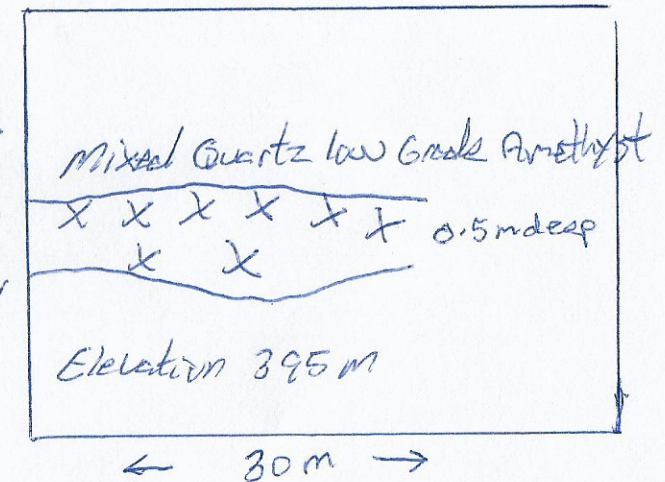 Mixed Quartz low Grade Amethyst
X X X X X X 0.5m deep
X X
Elevation 395 m
← 30 m →